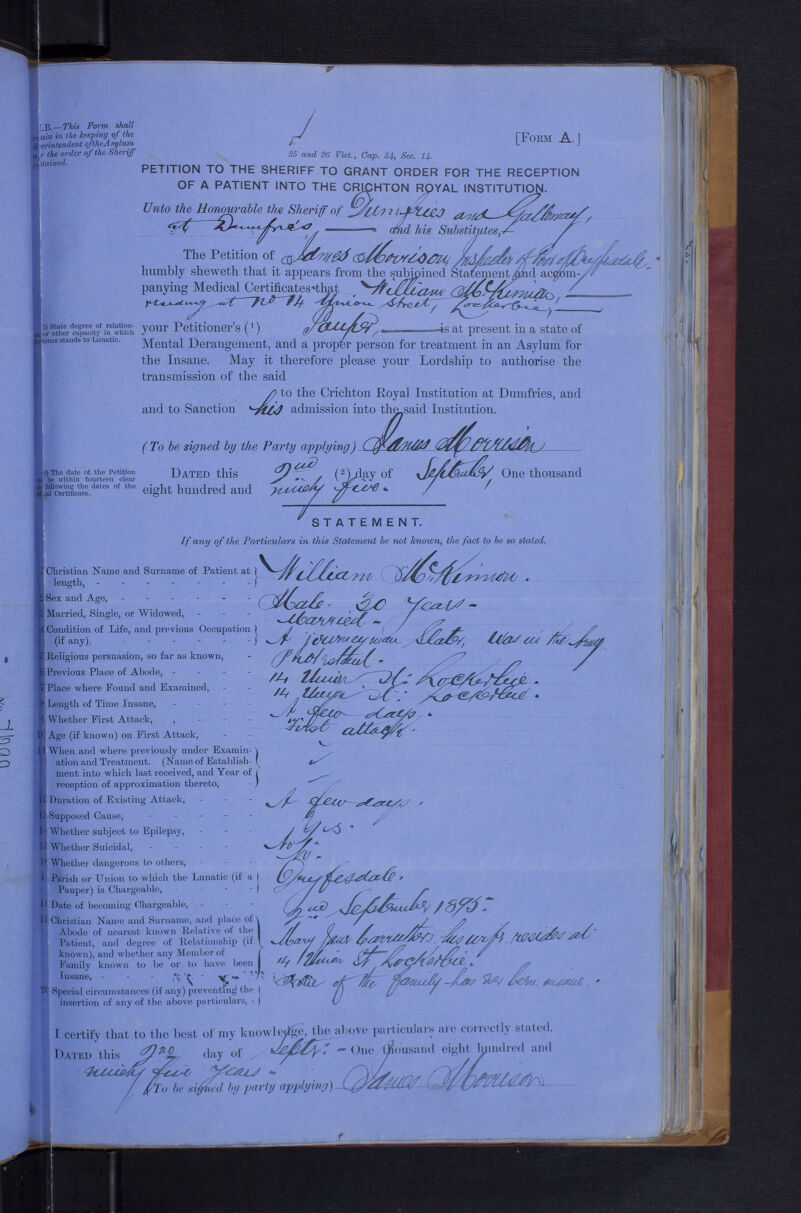 .B.—This Form shall
ain in the keeping of the
erintendent of the Asylum
r the order of the Sheriff
tained.
[FORM A.]
25 and 26 Vict., Cap. 54, Sec. 14.
PETITION TO THE SHERIFF TO GRANT ORDER FOR THE RECEPTION
OF A PATIENT INTO THE CRICHTON ROYAL INSTITUTION.
Unto the Honourable the Sheriff of Dumfries and Galloway,
at Dumfries, and his Substitutes,
The Petition of James Morrison, Inspector of Poor of Dryfesdale
humbly sheweth that it appears from the subjoined Statement and accom-
panying Medical Certificates that William McKinnon,
residing at No 14 Union Street, Lockerbie,
1) State degree of relation-
or other capacity in which
ioner stands to Lunatic.
your Petitioner's (1) Pauper, is at present in a state of
Mental Derangement, and a proper person for treatment in an Asylum for
the Insane. May it therefore please your Lordship to authorise the
transmission of the said
to the Crichton Royal Institution at Dumfries, and
and to Sanction his admission into the said Institution.
(To be signed by the Party applying) James Morrison
2) The date of the Petition
be within fourteen clear
following the dates of the
al Certificate.
DATED this 2nd (2) day of September, One thousand
eight hundred and ninety five.
STATEMENT.
If any of the Particulars in this Statement be not known, the fact to be so stated.
Christian Name and Surname of Patient at length, - William McKinnon.
Sex and Age, - Male. 30 Years -
Married, Single, or Widowed, - Married -
Condition of Life, and previous Occupation (if any). A journeyman Slater, was in the Army
Religious persuasion, so far as known, - Protestant.
Previous Place of Abode, - 14 Union St: Lockerbie.
Place where Found and Examined, - 14 Union St: Lockerbie.
Length of Time Insane, - A few days.
Whether First Attack, - First attack.
Age (if known) on First Attack,
When and where previously under Examin-
ation and Treatment. (Name of Establish-
ment into which last received, and Year of
reception of approximation thereto, -
Duration of Existing Attack, - A few days.
Supposed Cause, -
Whether subject to Epilepsy, - Yes.
Whether Suicidal, - Not.
Whether dangerous to others, - No.
Parish or Union to which the Lunatic (if a Pauper) is Chargeable, - Dryfesdale.
Date of becoming Chargeable, - 2nd September 1895.
Christian Name and Surname, and place of
Abode of nearest known Relative of the
Patient, and degree of Relationship (if
known), and whether any Member of
Family known to be or to have been
Insane, -
Mary Jane Carruthers his wife, resides at
14 Union St Lockerbie.
of the family has been insane.
Special circumstances (if any) preventing the
insertion of any of the above particulars, -
I certify that to the best of my knowledge, the above particulars are correctly stated.
DATED this 2nd day of Septr: - One thousand eight hundred and
ninety five Years -
(To be signed by party applying) James Morrison